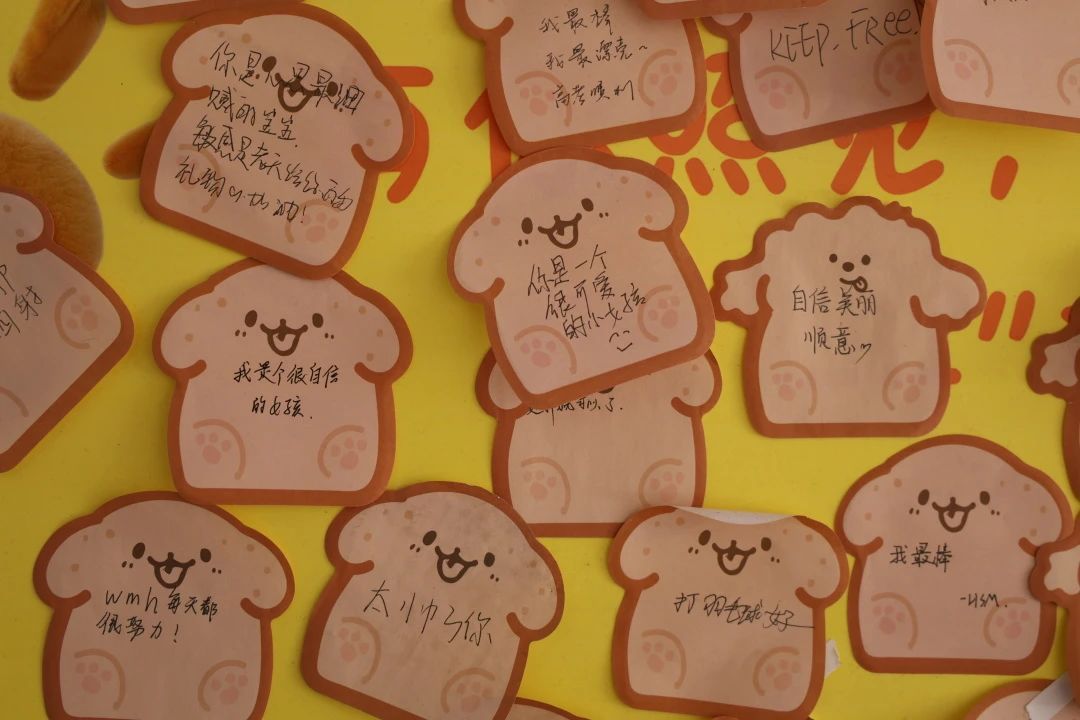 我最棒
我最漂亮~
高考顺利
KEEP. FREE!
你是
最细
腻的
敏感是老天给你的
礼物 加油!
照亮,
你是一个
很可爱
的小女孩
自信美丽
顺意
我是个很自信
的女孩.
了.
wmh每天都
很努力!
太帅了你
打羽毛球好
我最棒
射